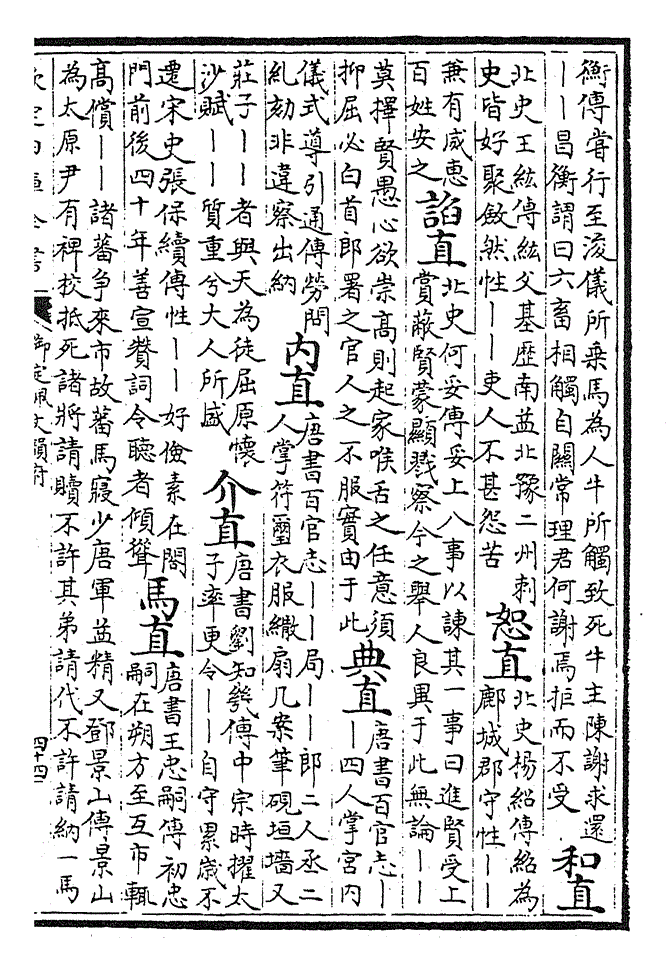 衡傳嘗行至浚儀所乗馬為人牛所觸致死牛主陳謝求還
丨丨昌衡謂曰六畜相觸自關常理君何謝焉拒而不受
和直
北史王紘傳紘父基歴南益北豫二州刺
史皆好聚斂然性丨丨吏人不甚怨苦
恕直
北史楊紹傳紹為
鄜城郡守性丨丨
兼有威恵
百姓安之
諂直
北史何妥傳妥上八事以諫其一事曰進賢受上
賞蔽賢蒙顯戮察今之舉人良異于此無論丨丨
莫擇賢愚心欲崇髙則起家喉舌之任意須
抑屈必白首郎署之官人之不服實由于此
典直
唐書百官志丨
丨四人掌宮内
儀式導引通傳勞問
糺劾非違察出納
内直
唐書百官志丨丨局丨丨郎二人丞二
人掌符璽衣服繖扇几案筆硯垣墻又
莊子丨丨者與天為徒屈原懷
沙賦丨丨質重兮大人所盛
介直
唐書劉知幾傳中宗時擢太
子率更令丨丨自守累歳不
遷宋史張保續傳性丨丨好儉素在閤
門前後四十年善宣賛詞令聽者傾聳
馬直
唐書王忠嗣傳初忠
嗣在朔方至互市輒
髙償丨丨諸蕃争來市故蕃馬寢少唐軍益精又鄧景山傳景山
為太原尹有裨校抵死諸將請贖不許其弟請代不許請納一馬
欽定四庫全書
御定佩文韻府
四十四